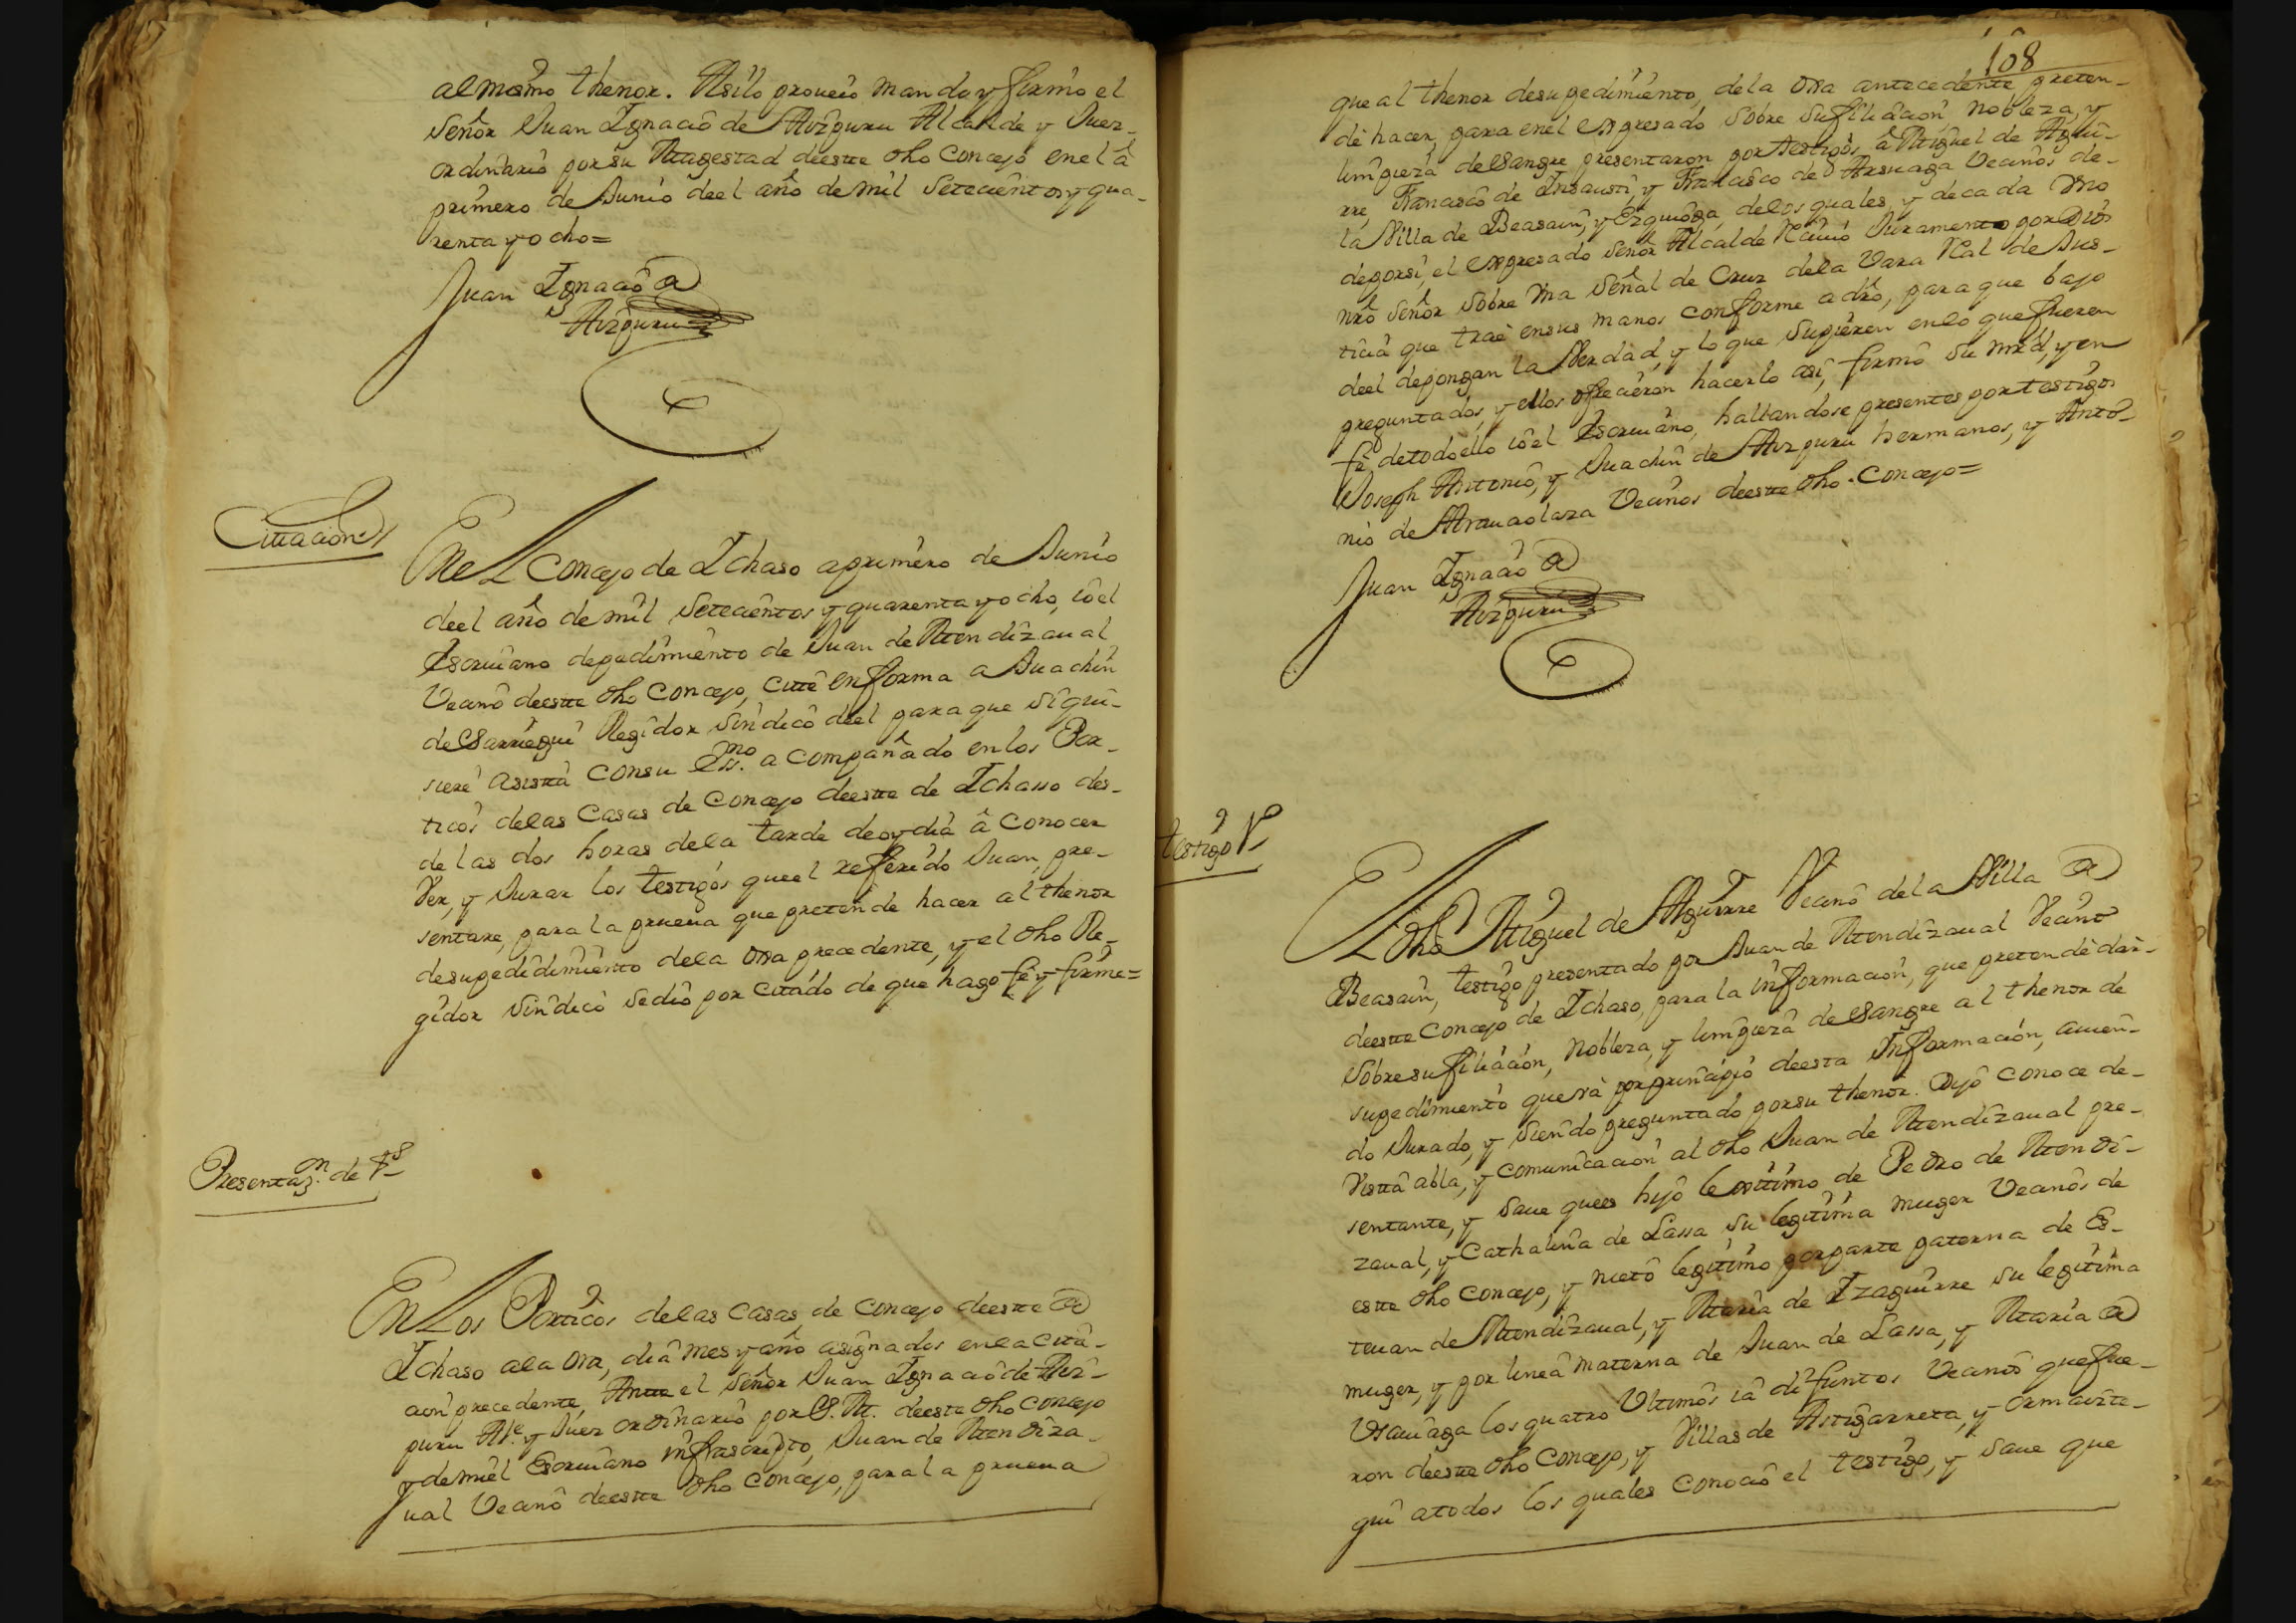 al mismo thenor. Asilo proueio mando y firmo el
Señor Juan Ignacio de Aizpuru Alcalde y Juez
ordinario por su Magestad deeste dho Concejo en el à
primero de Junio deel año de mil Setecientos y qua-
renta y ocho=
Juan Ignacio de
Aizpuru
Cittacion
En el Concejo de Ichaso a primero de Junio
deel año de mil Setecientos y quarenta y ocho, io el
Escriuano de pedimiento de Juan de Mendizaual
Vecino deeste dho Concejo, citte en forma a Juachin
de Sarriegui Regidor Sindico deel para que si qui-
siere asista con su Essno. acompañado en los Por-
ticos delas Casas de Concejo deeste de Ichasso des-
de las dos horas dela tarde de oy dia â Conocer
Ver, y Jurar los testigos que el referido Juan, pre-
sentare, para la prueua que pretende hacer al thenor
de su pedidimiento dela otra precedente, y el dho Re-
gidor Sindico se dio por citado de que hago fe y firme=
Presentazn. de tgs
En Los Porticos delas Casas de Concejo deeste de
Ichaso ala Ora, dia mes y año asignados en la cita-
cion precedente, Antte el Señor Juan Ignacio de Aiz-
puru Alce. y Juez ordinario por S. M. deeste dho Concejo
y de mi el Escriuano infrascripto, Juan de Mendiza-
ual Vecino deeste dho Concejo, para la prueua
108
que al thenor de su pedimiento, dela otra antecedente preten-
de hacer, para en el expresado sobre su filiacion, nobleza, y
limpieza de Sangre presentaron por testigos â Miguel de Aguir-
rre, Francisco de Insausti, y Francisco de Arsuaga Vecinos de
la Villa de Beasain, y Ezquioga, delos quales, y de cada Vno
de por si, el expresado señor Alcalde Reciuio Juramento por Dios
nro Señor sobre Vna Señal de Cruz dela Vara Real de Jus-
ticia que trae en sus manos conforme a dro, para que bajo
deel depongan la Verdad, y lo que supieren en lo que fueren
preguntados, y ellos ofrecieron hacerlo asi, firmo su mrd, y en
fe de todo ello io el Escriuano, hallandose presentes por testigos
Joseph Antonio, y Juachin de Aizpuru hermanos, y Anto-
nio de Arrucolaza Vecinos deeste dho Concejo=
Juan Ignacio de
Aizpuru
testigo 1º
El dho Miguel de Aguirre Vecino de la Villa de
Beasain, testigo presentado por Juan de Mendizaual Vecino
deeste Concejo de Ichaso, para la informacion, que pretende dar
sobre su filiacion, nobleza, y limpieza de Sangre al thenor de
su pedimiento que va por principio deesta informacion, auien-
do Jurado, y siendo preguntado por su thenor. Dijo conoce de
Vista abla, y comunicacion al dho Juan de Mendizaual pre-
sentante, y saue que es hijo lexitimo de Pedro de Mendi-
zaual, y Cathalina de Lassa su legitima muger Vecinos de
este dho Concejo, y nieto legitimo por parte paterna de Es-
teuan de Mendizaual, y Maria de Izaguirre su legitima
muger, y por linea materna de Juan de Lassa, y Maria de
Vsauiaga los quatro Vltimos ia difuntos Vecinos que fue-
ron deeste dho Concejo, y Villas de Astigarreta, y Ormaizte-
gui a todos los quales conocio el testigo, y saue que